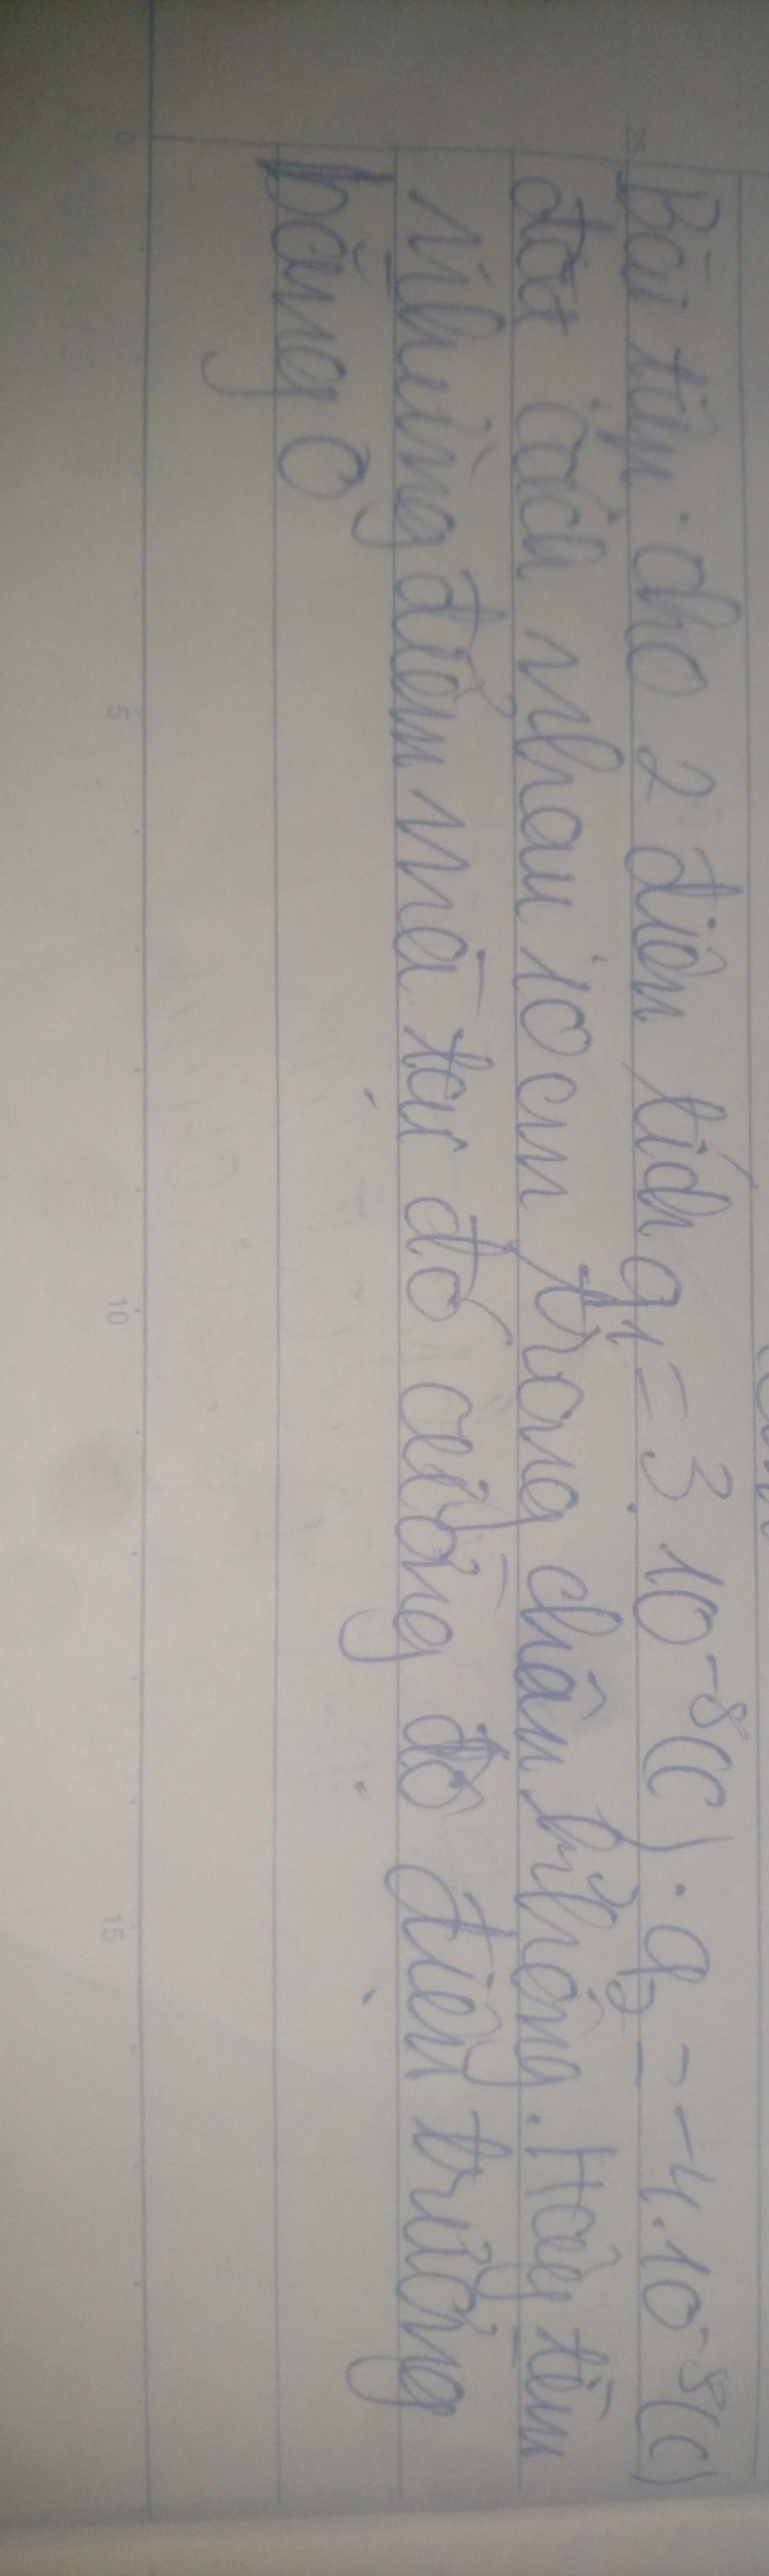 Bài tập: cho 2 điện tích q₁ = 3.10⁻⁸(C). q₂ = -4.10⁻⁸(C)
đặt cách nhau 10 cm trong chân không. Hãy tìm
những điểm mà tại đó cường độ điện trường
bằng 0
0
5
10
15
25